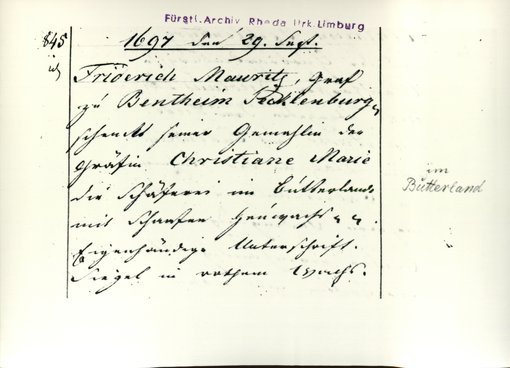 Fürstl. Archiv Rheda Urk. Limburg
845
1697 den 29. Sept.
Friderich Mauritz, Graf
zu Bentheim Tecklenburg
schenkt seiner Gemahlin der
Gräfin Christiane Marie
die Schäferei im Bütterlande
mit Schaafen Heuwachs
Eigenhändige Unterschrift.
Siegel in rothem Wachs.
im
Bütterland